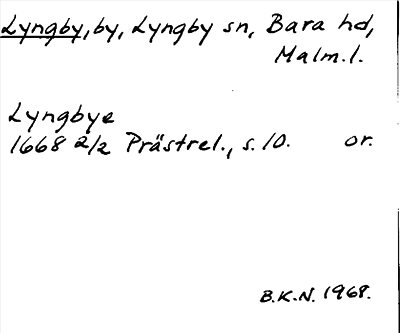 Lyngby, by, Lyngby sn, Bara hd,
Malm.l.
Lyngbye
1668 2/2 Prästrel., s. 10. or.
B.K.N. 1968.